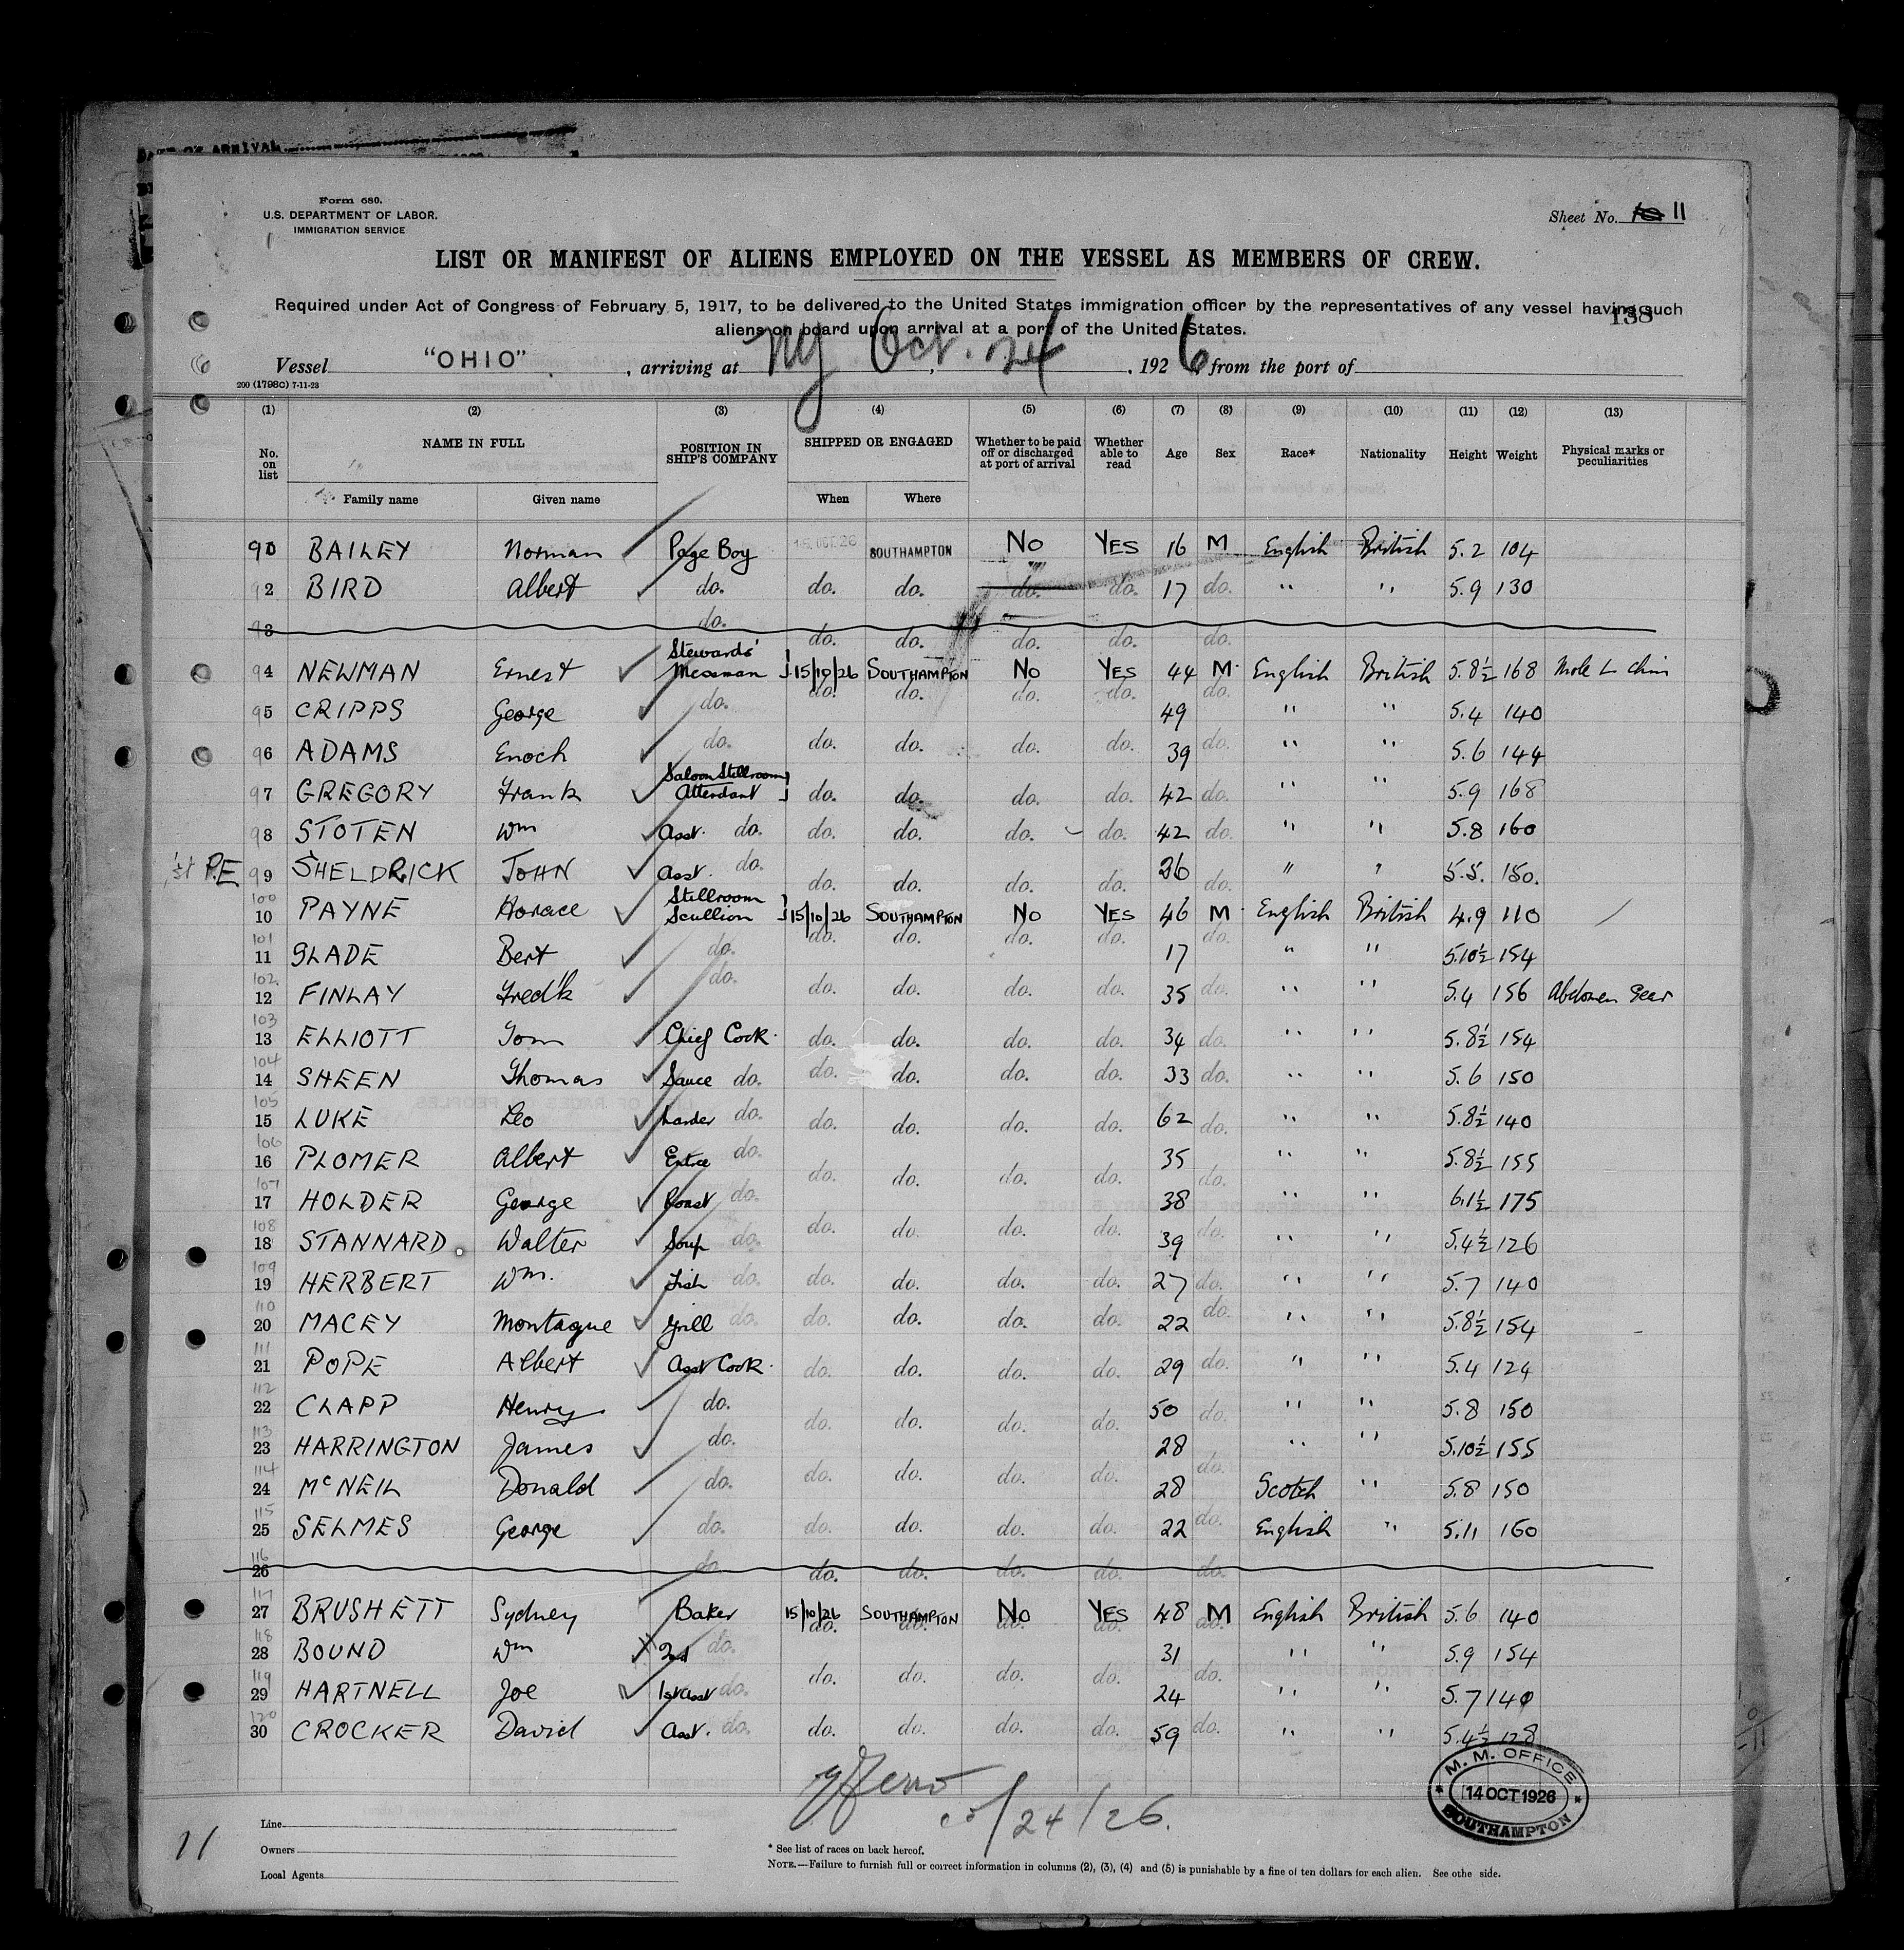 DATE OF ARRIVAL
Form 680.
U.S. DEPARTMENT OF LABOR.
IMMIGRATION SERVICE
Sheet No. 10 11
LIST OR MANIFEST OF ALIENS EMPLOYED ON THE VESSEL AS MEMBERS OF CREW.
Required under Act of Congress of February 5, 1917, to be delivered to the United States immigration officer by the representatives of any vessel having such
aliens on board upon arrival at a port of the United States.
138
Vessel "OHIO", arriving at NY Oct. 24, 1926, from the port of
200 (1798C) 7-11-23
(1) (2) (3) (4) (5) (6) (7) (8) (9) (10) (11) (12) (13)
No. on list NAME IN FULL POSITION IN SHIP'S COMPANY SHIPPED OR ENGAGED Whether to be paid off or discharged at port of arrival Whether able to read Age Sex Race* Nationality Height Weight Physical marks or peculiarities
Family name Given name When Where
91 BAILEY Norman Page Boy 15 OCT 26 SOUTHAMPTON No YES 16 M English British 5.2 104
92 BIRD Albert do. do. do. do. do. 17 do. " " 5.9 130
93 do. do. do. do. do. do.
94 NEWMAN Ernest Stewards' Messman 15/10/26 SOUTHAMPTON No YES 44 M English British 5.8½ 168 Mole L Chin
95 CRIPPS George do. do. do. do. do. 49 do. " " 5.4 140
96 ADAMS Enoch do. do. do. do. do. 39 do. " " 5.6 144
97 GREGORY Frank Saloon Stillroom Attendant do. do. do. do. 42 do. " " 5.9 168
98 STOTEN Wm Asst. do. do. do. do. do. 42 do. " " 5.8 160
P.E. 99 SHELDRICK JOHN Asst. do. do. do. do. do. 26 do. " " 5.5. 150.
100 10 PAYNE Horace Stillroom Scullion 15/10/26 SOUTHAMPTON No YES 46 M English British 4.9 110
101 11 SLADE Bert do. do. do. do. do. 17 do. " " 5.10½ 154
102 12 FINLAY Fred'k do. do. do. do. do. 35 do. " " 5.4 156 Abdomen Scar
103 13 ELLIOTT Tom Chief Cook. do. do. do. do. 34 do. " " 5.8½ 154
104 14 SHEEN Thomas Sauce do. do. do. do. do. 33 do. " " 5.6 150
105 15 LUKE Leo Larder do. do. do. do. do. 62 do. " " 5.8½ 140
106 16 PLOMER Albert Entree do. do. do. do. do. 35 do. " " 5.8½ 155
107 17 HOLDER George Roast do. do. do. do. do. 38 do. " " 6.1½ 175
108 18 STANNARD. Walter Soup do. do. do. do. do. 39 do. " " 5.4½ 126
109 19 HERBERT Wm. Fish do. do. do. do. do. 27 do. " " 5.7 140
110 20 MACEY Montague Grill do. do. do. do. do. 22 do. " " 5.8½ 154
111 21 POPE Albert Asst Cook. do. do. do. do. 29 do. " " 5.4 124
112 22 CLAPP Henry do. do. do. do. do. 50 do. " " 5.8 150
113 23 HARRINGTON James do. do. do. do. do. 28 do. " " 5.10½ 155
114 24 McNEIL Donald do. do. do. do. do. 28 do. Scotch " 5.8 150
115 25 SELMES George do. do. do. do. do. 22 do. English " 5.11 160
116 26 do. do. do. do. do. do.
117 27 BRUSHETT Sydney Baker 15/10/26 SOUTHAMPTON No YES 48 M English British 5.6 140
118 28 BOUND Wm 2nd do. do. do. do. do. 31 do. " " 5.9 154
119 29 HARTNELL Joe 1st Asst do. do. do. do. do. 24 do. " " 5.7 140
120 30 CROCKER David Asst. do. do. do. do. do. 59 do. " " 5.4½ 128
10/24/26.
M. M. OFFICE
14 OCT 1926
SOUTHAMPTON
11
Line
Owners
Local Agents
* See list of races on back hereof.
NOTE.—Failure to furnish full or correct information in columns (2), (3), (4) and (5) is punishable by a fine of ten dollars for each alien. See othe side.